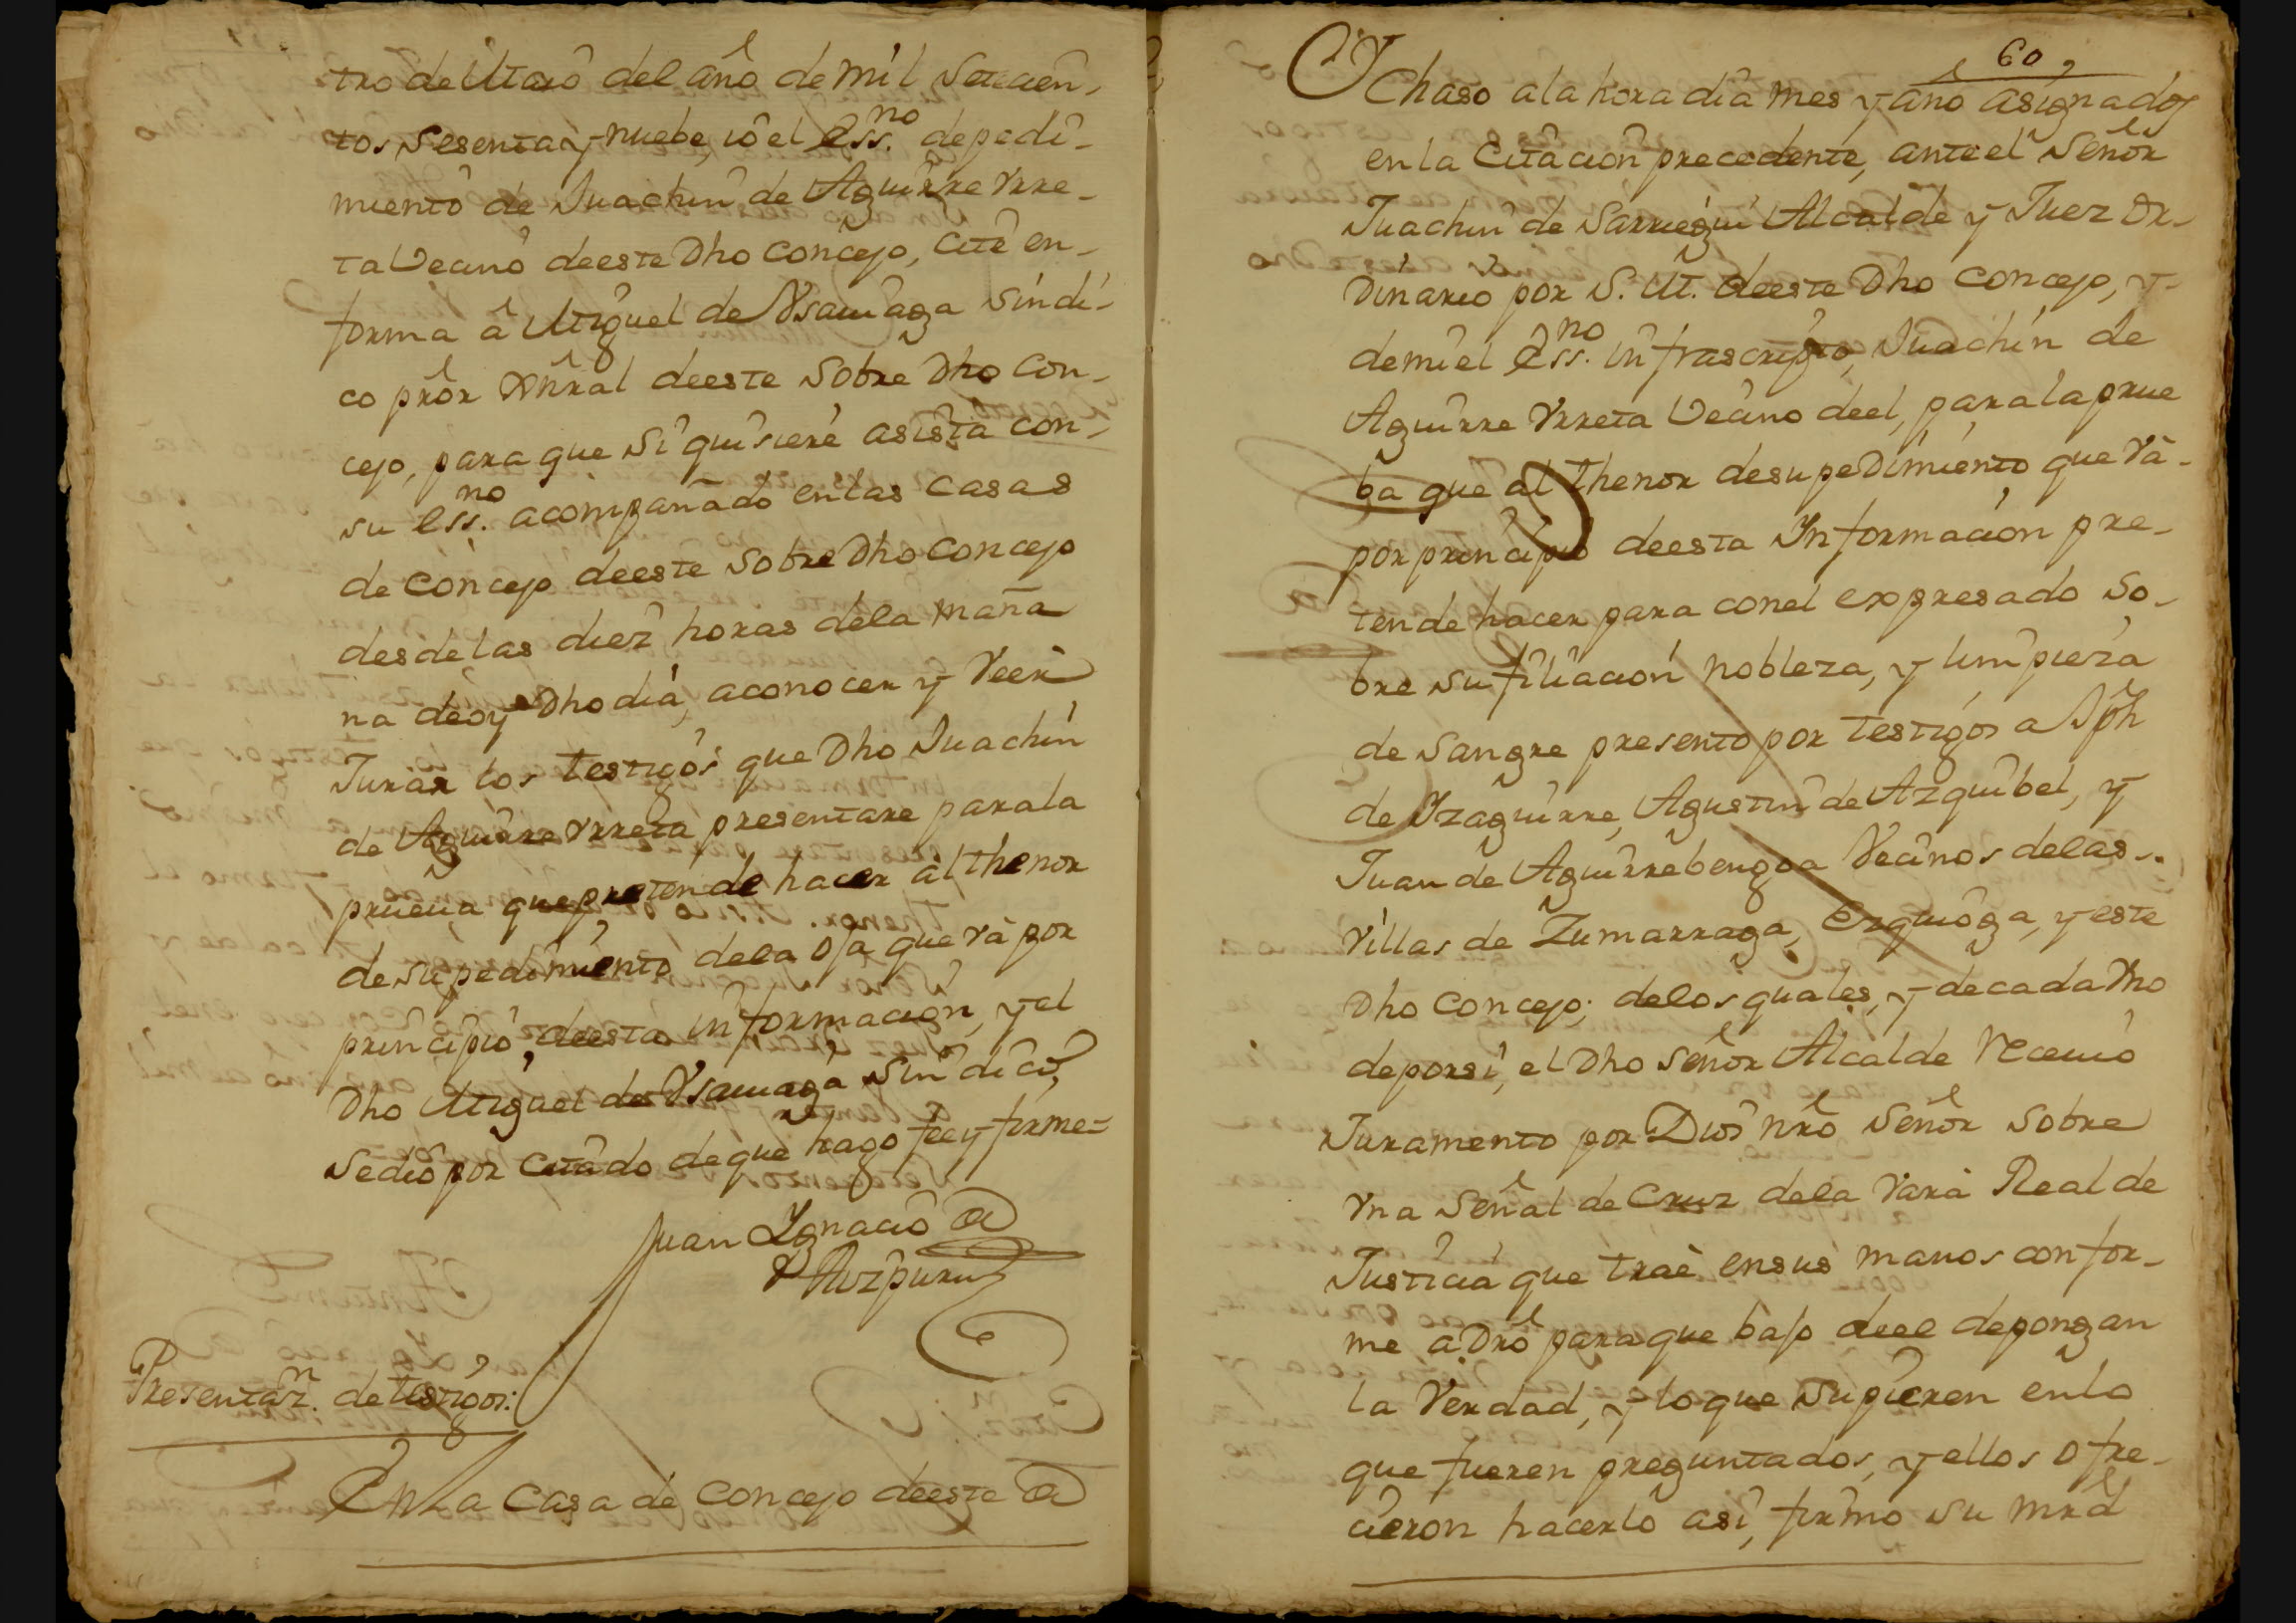 tro de Maio del año de mil setecien-
tos sesenta y nuebe, io el Ess.no de pedi-
miento de Juachin de Aguirre Yrre-
ta Vecino de este Dho Concejo, cite en
forma â Miguel de Ysasuiaga Sindi-
co prôr Gnral de este Sobre Dho Con-
cejo, para que si quisiere asista con
su Ess.no acompañado en las Casas
de Concejo de este Sobre Dho Concejo
desde las diez horas dela maña
na de oy Dho dia, a conocer y Veer
Jurar los testigos que Dho Juachin
de Aguirre Yrreta presentare para la
prueua que pretende hacer al thenor
de su pedimiento dela oja que và por
principio de esta informacion, y el
Dho Miguel de Ysasuiaga Sindico,
se dio por citado de que hago fee y firme=
Juan Ygnacio @
Aizpuru
Presentaz.n de testigos:
En La Casa de Concejo de este @
60
Dhaso a la hora dia mes y año asignados
en la Citacion precedente, ante el Señor
Juachin de Sarriegui Alcalde y Juez Or-
dinario por S. M. de este Dho Concejo, y
de mi el Ess.no infrascripto, Juachin de
Aguirre Yrreta Vecino de el, para la prue
ba que al thenor de su pedimiento que và
por principio de esta Informacion pre-
tende hacer para con el expresado so-
bre su filiacion nobleza, y limpieza
de sangre presento por testigos a Jph
de Yzaguirre, Agustin de Azquibel, y
Juan de Aguirrebengoa Vecinos de las
Villas de Zumarraga, Ezquioga, y este
Dho Concejo; de los quales, y de cada Vno
de por si, el Dho Señor Alcalde Reciuio
Juramento por Dios nrô Señor sobre
Vna Señal de Cruz dela Vara Real de
Justicia que trae en sus manos confor-
me a Drô para que bajo de el depongan
la Verdad, y lo que supieren en lo
que fueren preguntados, y ellos ofre-
cieron hacerlo asi, firmo su mrd